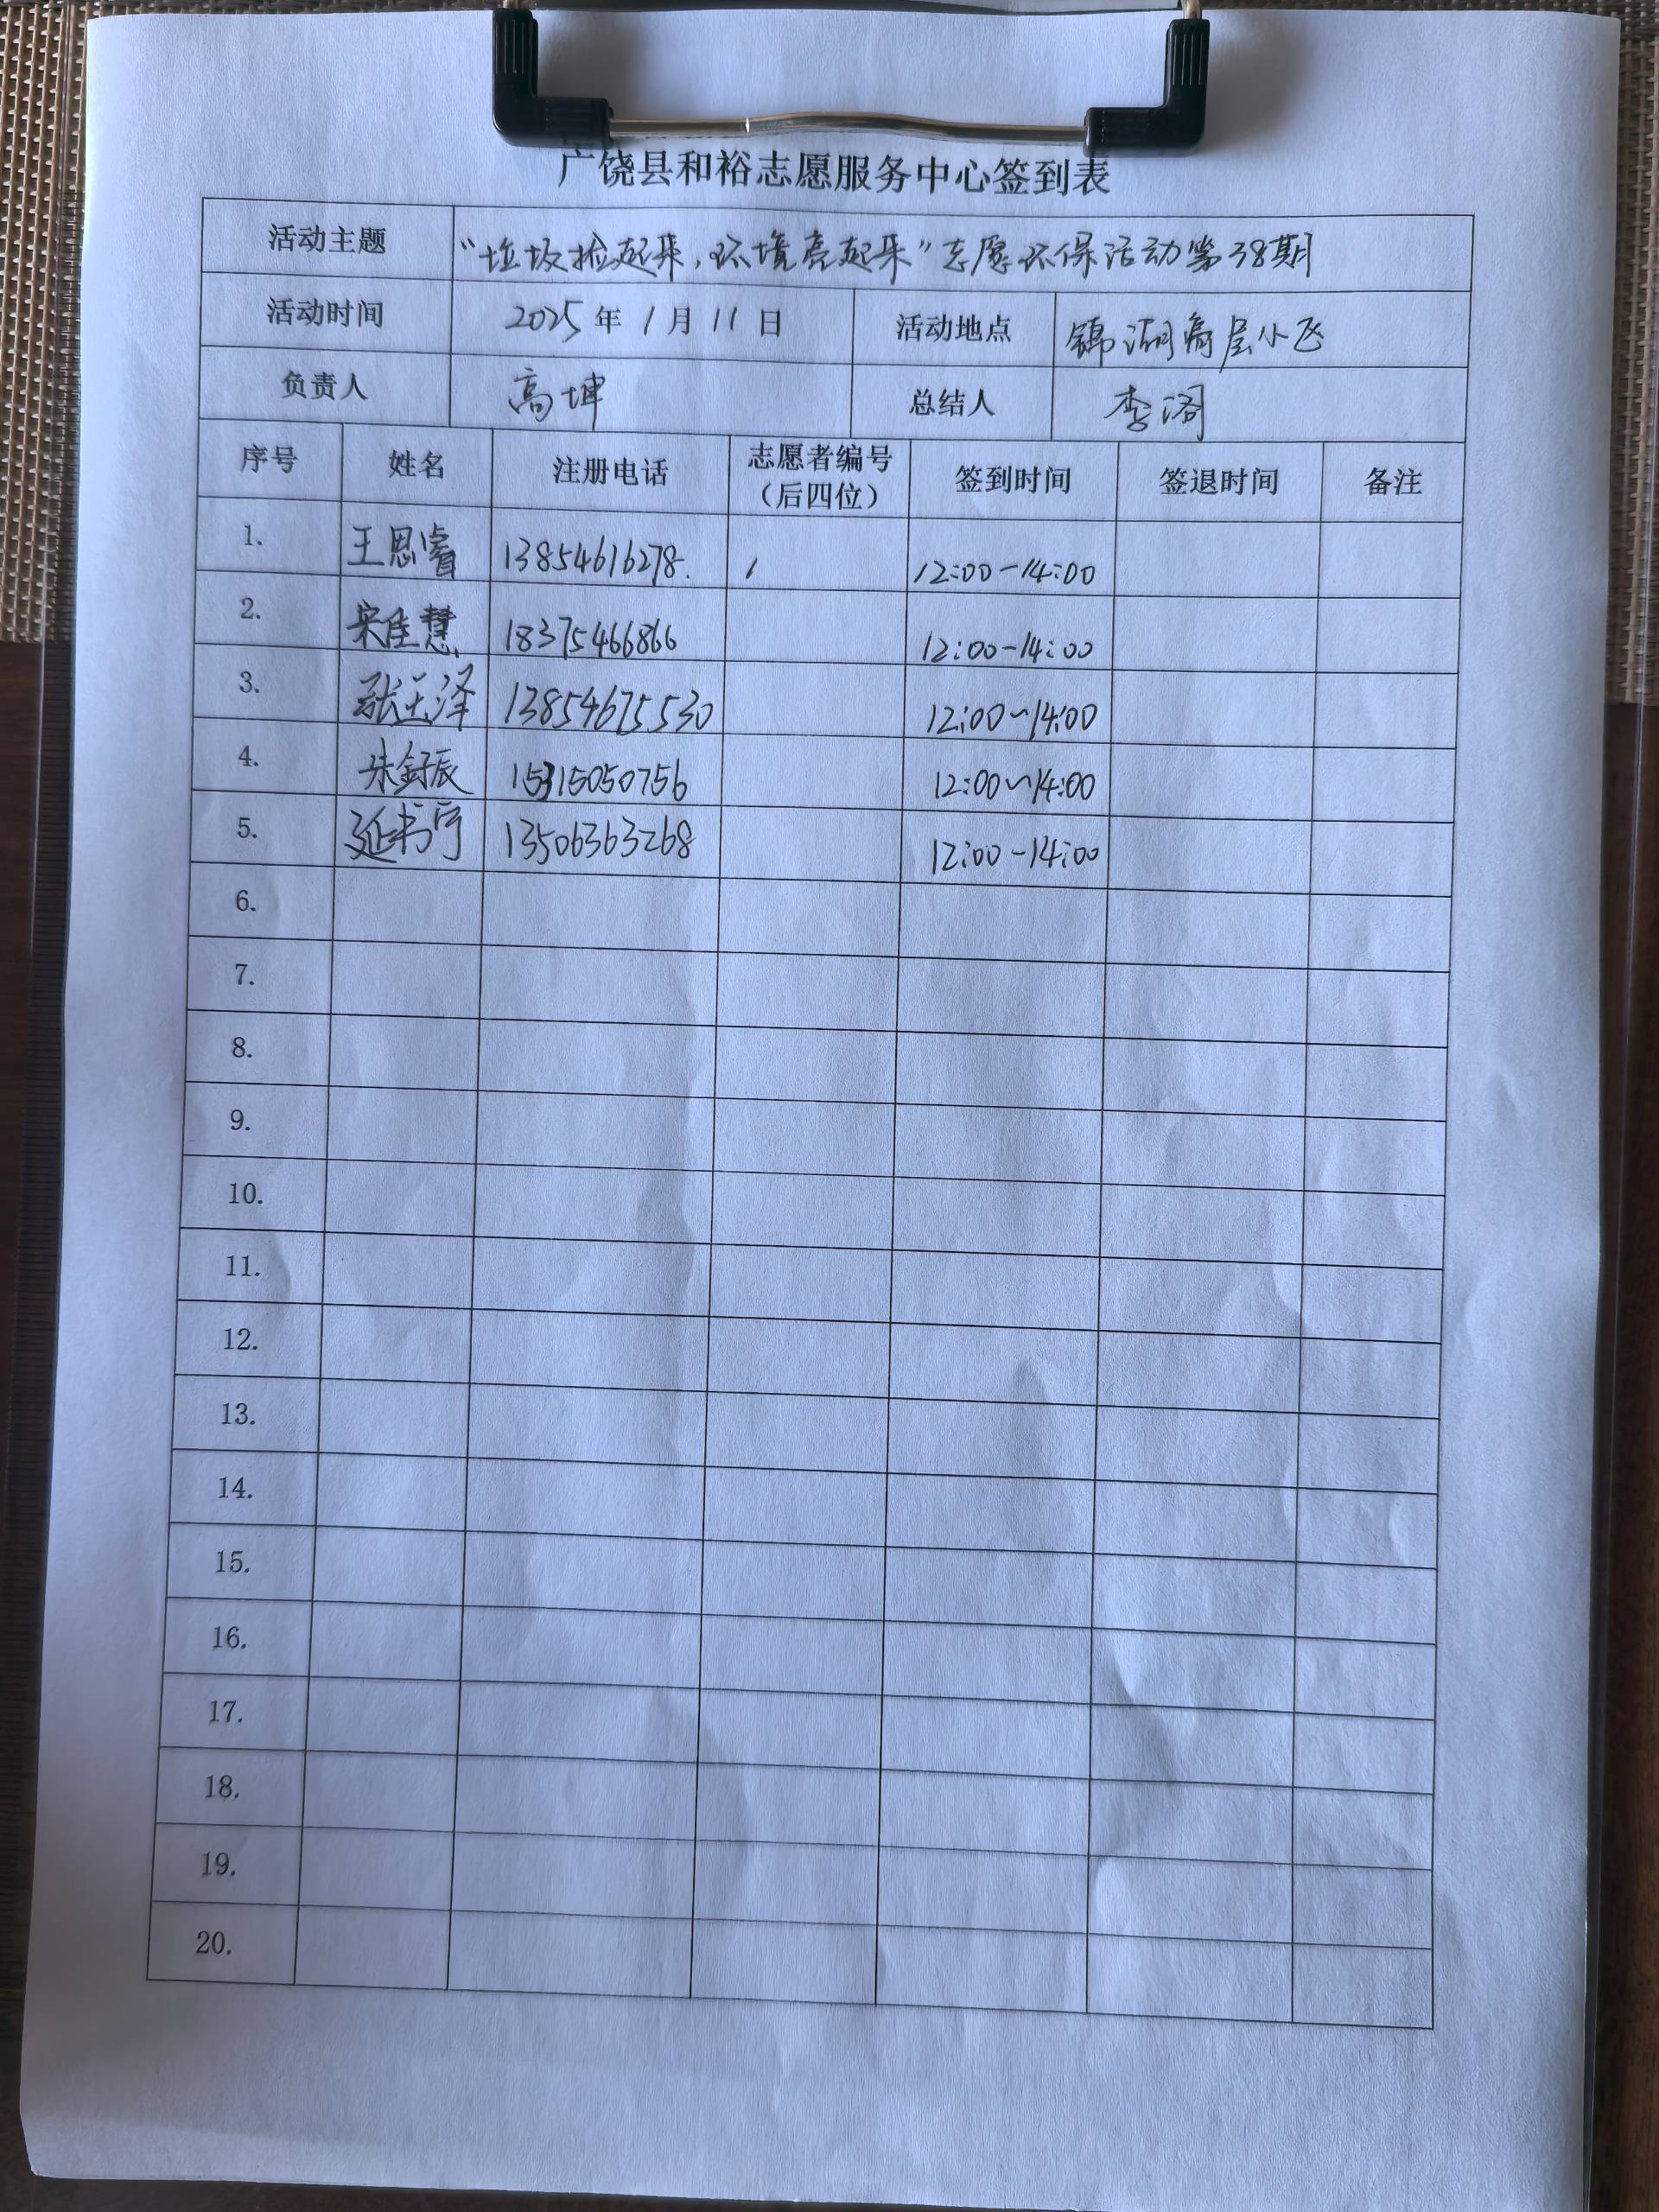 广饶县和裕志愿服务中心签到表
活动主题 “垃圾捡起来，环境亮起来”志愿环保活动第38期
活动时间 2025年1月11日 活动地点 锦湖高层小区
负责人 高坤 总结人 李
序号 姓名 注册电话 志愿者编号（后四位） 签到时间 签退时间 备注
1. 王思睿 13854616278. 12:00-14:00
2. 宋佳慧 18375466866 12:00-14:00
3. 张玉泽 13854675530 12:00~14:00
4. 朱 辰 15315050756 12:00~14:00
5. 延书宁 13506363268 12:00-14:00
6.
7.
8.
9.
10.
11.
12.
13.
14.
15.
16.
17.
18.
19.
20.